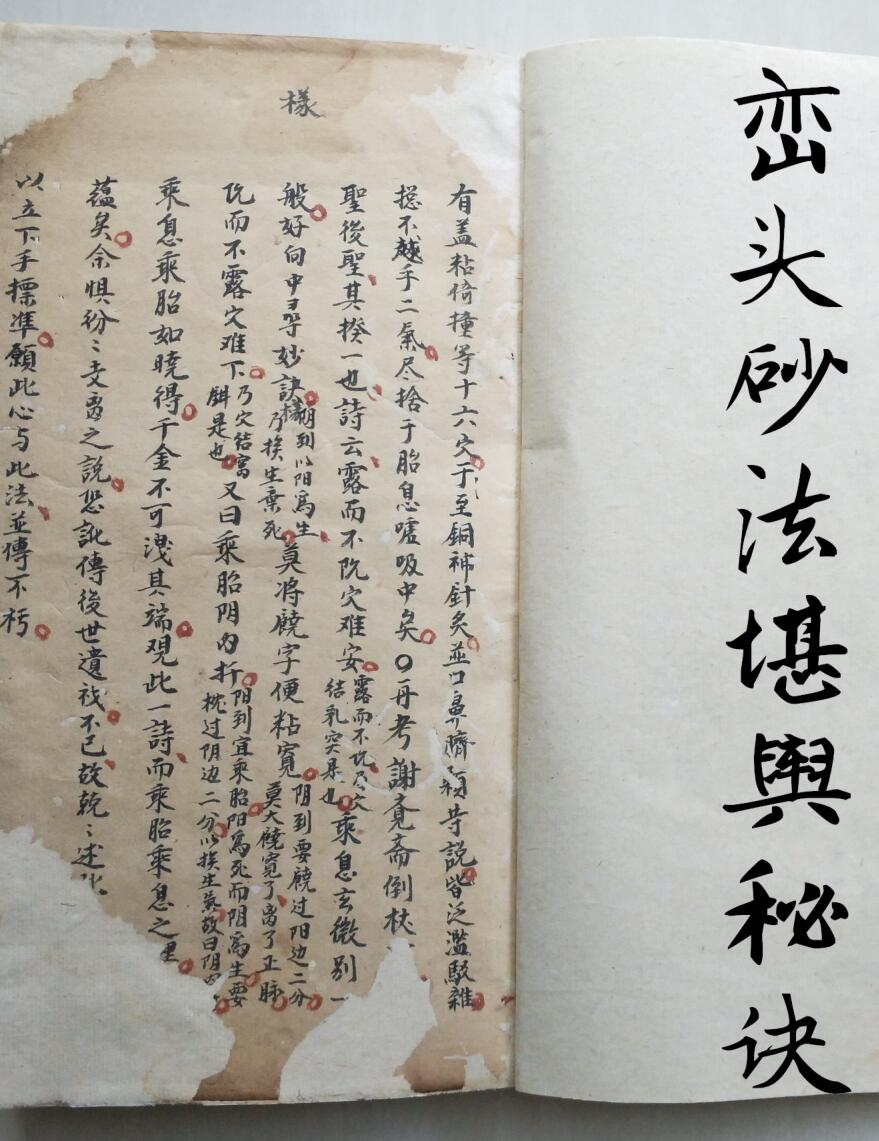 峦头砂法堪舆秘诀
樣
有盖粘倚撞等十六穴于至銅神針灸並口鼻臍
說皆泛濫駁雜
捴不越乎二氣尽捨于胎息嘘吸中矣〇再考謝覔斋倒杖
聖後聖其揆一也詩云露而不阬穴难安
露而不阬乃穴
結乳突是也
乘息玄微別一
般好向中尋妙訣
朝到以阳為生
乃挨生棄死
莫将饒字便粘寬
阴到要饒过阳边二分
莫大饒寬了离了正脉
阬而不露穴难下
乃穴結窩
鉗是也
又曰乘胎阴内折
阳到宜乘胎阳為死而阴為生要
枕过阴边二分以挨生氣故曰阴内
乘息乘胎如曉得千金不可洩其端观此一詩而乘胎乘息之里
蘊矣余惧紛〻支离之說恐訛傳後世遺
不已故乾〻述此
以立下手標準願此心与此法並傳不朽